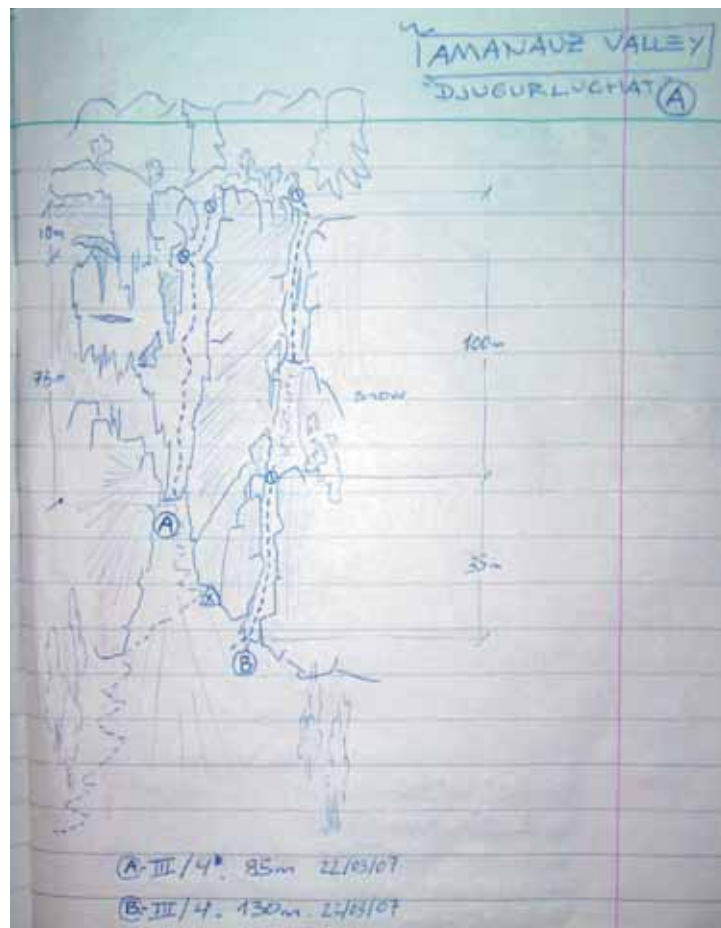 AMANAUZ VALLEY
"DJUGURLUCHAT" A
10m
75m
100m
SNOW
A
35m
B
A-III/4+. 85m 22/03/07
B-III/4. 130m. 22/03/07